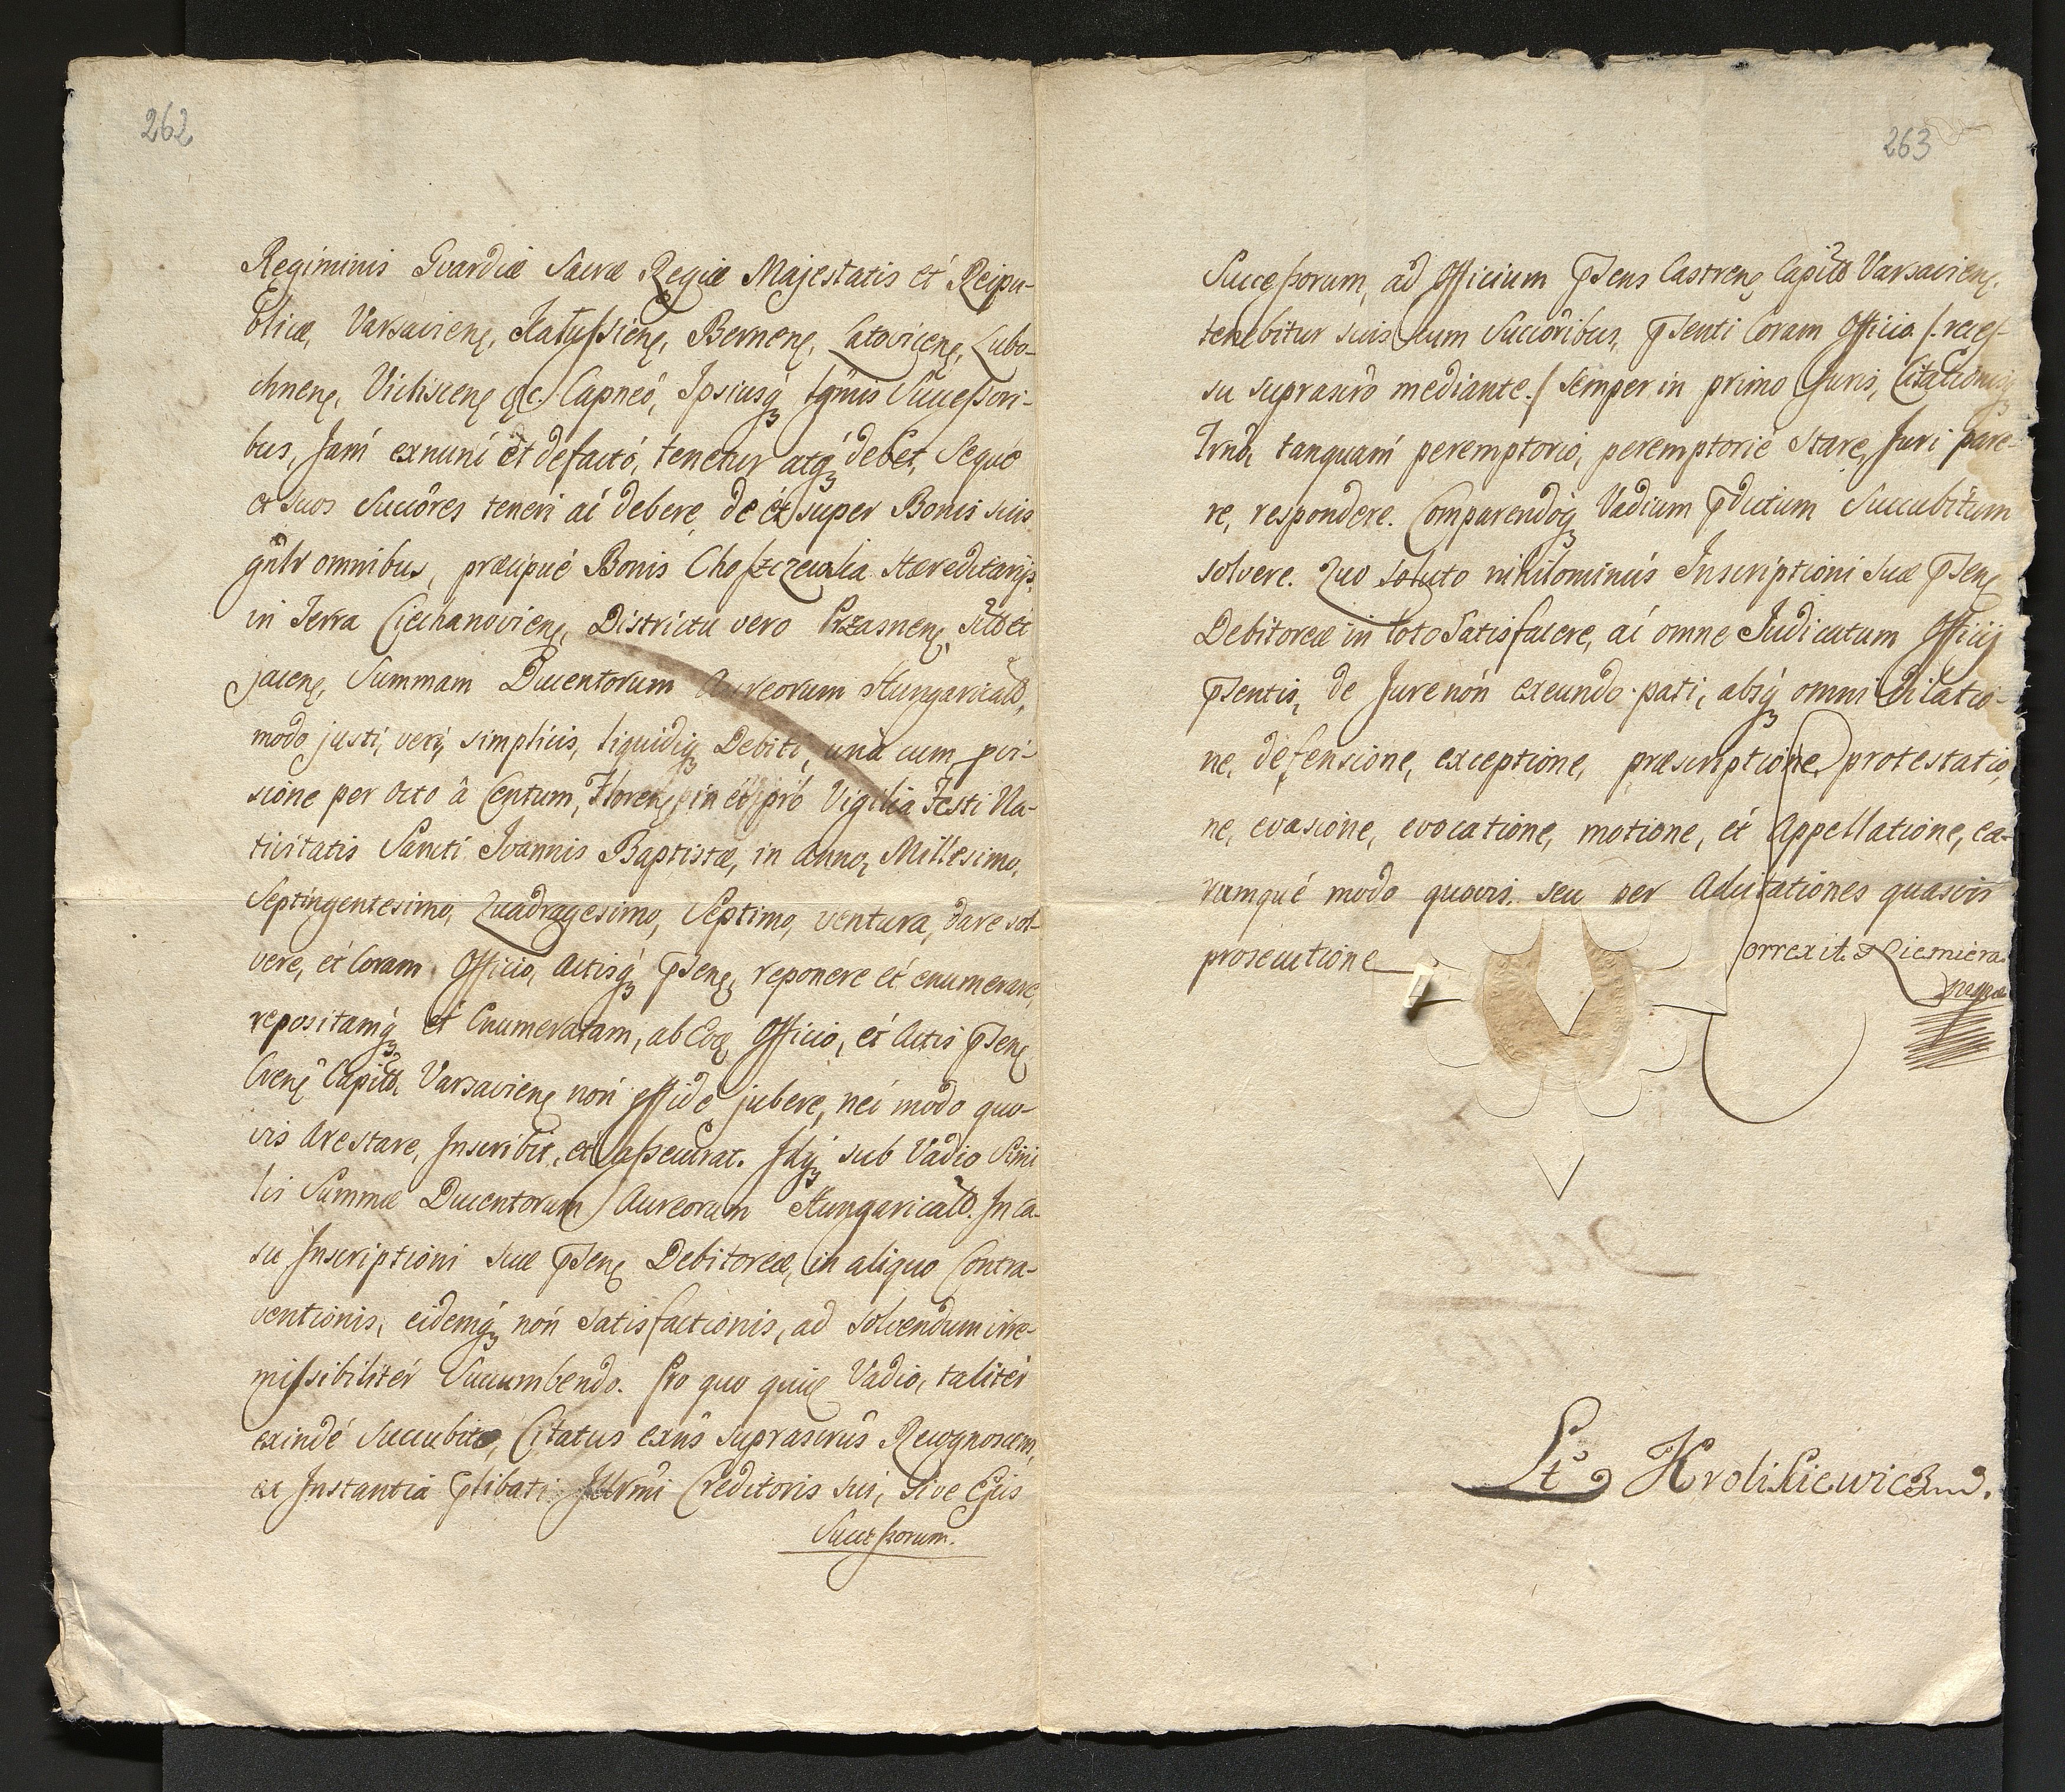 262
Regiminis Gvardiæ Sacræ Regiæ Majestatis et Reipu-
blicæ, Varsavien, Bernen, Latovicen, Lubo-
chnen, Vichiscen &c. Capneó, Ipsiusq Successori-
bus, Jam exnunc et defactó, tenetur atq debet, Seque
et suos Succores teneri ac debere, de et super Bonis suis
gnlr omnibus, præcipué Bonis Choszczewka Hæreditarijs,
in Terra Ciechanovien, Districtu vero Przasnen,
jacen, Summam Ducentorum Aureorum Hungarical,
modo justi, veri, simplicis, liquidiq Debiti, una cum pvi-
sione per octo â Centum, Floren, in et pro Vigilia Festi Na-
tivitatis Sancti Ioannis Baptistæ, in Anno, Millesimo,
Septingentesimo, Quadragesimo, Septimo, ventura, dare sol-
vere, et Coram Officio, Actisq pnsen, reponere et enumerare,
repositamq et Enumeratam, ab Eoq, Officio, et Actis pnsen
Cren Capital Varsavien non jubere, nec modo quo-
vis Arestare, Inscribit, et assecurat. Idq sub Vadio Simi
lis Summæ Ducentorum Aureorum Hungarical. In Ca-
su Inscriptioni suæ pnsen Debitoreæ, in aliquo Contra-
ventionis, eidemq non satisfactionis, ad solvendum irre-
missibilitér Succumbendo. Pro quo quiq Vadio, talitér
exindé Succubito, Citatus exns suprascrus Recognoscens,
ex Instantia plibati Illrmi Creditoris sui, sive Ejus
Successorum.
263
Successorum, ad Officium pnsens Castren Capital Varsavien.
tenebitur suis cum Succoribus, pnsenti Coram Officio /: reces-
su suprascro mediante :/ semper in primo Juris, Citationisq
Trno, tanquam peremptorio, peremptorie stare, Juri pare-
re, respondere. Comparendoq Vadium pdictum Succubitum
solvere. Quo soluto nihilominús Inscriptioni suæ pnsen
Debitoreæ in toto Satisfacere, ac omne Judicatum Officij
pnsentis, de Jure nón exeundo pati, absq omni dilatio-
ne, defensione, exceptione, præscriptione, protestatio
ne, evasione, evocatione, motione, et Appellatione, ea-
rumqué modo quovis seu per Adcitationes quasvis
prosecutione
Correxit Ciemiera
mppa
Lt Krolikiewicz